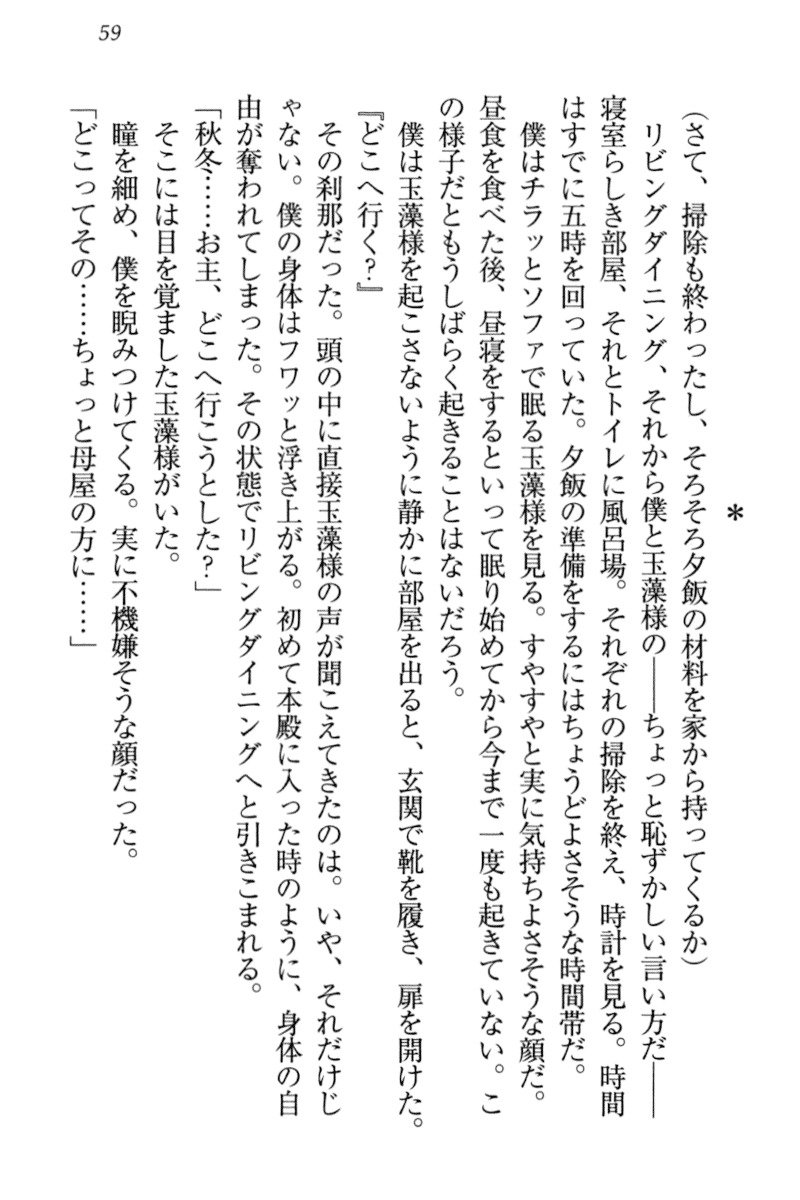 59
*
(さて、掃除も終わったし、そろそろ夕飯の材料を家から持ってくるか)
リビングダイニング、それから僕と玉藻様の――ちょっと恥ずかしい言い方だ――
寝室らしき部屋、それとトイレに風呂場。それぞれの掃除を終え、時計を見る。時間
はすでに五時を回っていた。夕飯の準備をするにはちょうどよさそうな時間帯だ。
僕はチラッとソファで眠る玉藻様を見る。すやすやと実に気持ちよさそうな顔だ。
昼食を食べた後、昼寝をするといって眠り始めてから今まで一度も起きていない。こ
の様子だともうしばらく起きることはないだろう。
僕は玉藻様を起こさないように静かに部屋を出ると、玄関で靴を履き、扉を開けた。
『どこへ行く?』
その刹那だった。頭の中に直接玉藻様の声が聞こえてきたのは。いや、それだけじ
ゃない。僕の身体はフワッと浮き上がる。初めて本殿に入った時のように、身体の自
由が奪われてしまった。その状態でリビングダイニングへと引きこまれる。
「秋冬……お主、どこへ行こうとした?」
そこには目を覚ました玉藻様がいた。
瞳を細め、僕を睨みつけてくる。実に不機嫌そうな顔だった。
「どこってその……ちょっと母屋の方に……」